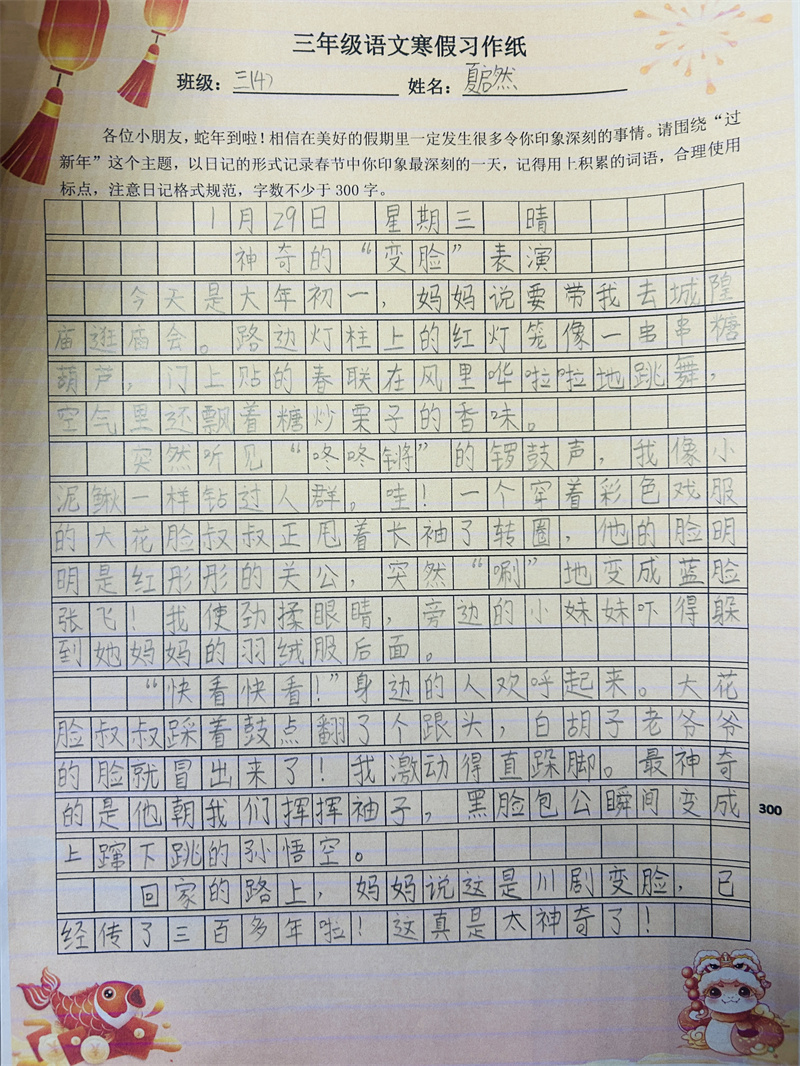 三年级语文寒假习作纸
班级：三(4) 姓名：夏启然
各位小朋友，蛇年到啦！相信在美好的假期里一定发生很多令你印象深刻的事情。请围绕“过
新年”这个主题，以日记的形式记录春节中你印象最深刻的一天，记得用上积累的词语，合理使用
标点，注意日记格式规范，字数不少于 300 字。
1月29日 星期三 晴
神奇的“变脸”表演
今天是大年初一，妈妈说要带我去城隍
庙逛庙会。路边灯柱上的红灯笼像一串串糖
葫芦，门上贴的春联在风里哗啦啦地跳舞，
空气里还飘着糖炒栗子的香味。
突然听见“咚咚锵”的锣鼓声，我像小
泥鳅一样钻过人群，哇！一个穿着彩色戏服
的大花脸叔叔正甩着长袖了转圈，他的脸明
明是红彤彤的关公，突然“唰”地变成蓝脸
张飞！我使劲揉眼睛，旁边的小妹妹吓得躲
到她妈妈的羽绒服后面。
“快看快看！”身边的人欢呼起来。大花
脸叔叔踩着鼓点翻了个跟头，白胡子老爷爷
的脸就冒出来了！我激动得直跺脚。最神奇
的是他朝我们挥挥袖子，黑脸包公瞬间变成
300
上蹿下跳的孙悟空。
回家的路上，妈妈说这是川剧变脸，已
经传了三百多年啦！这真是太神奇了！